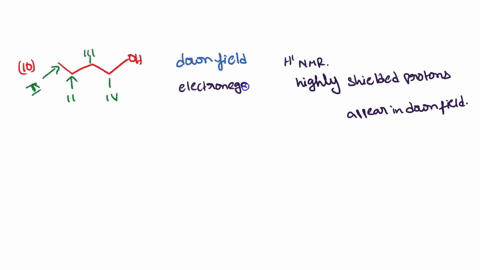 (10)
I
II
III
IV
OH
downfield
electronege
H' NMR.
highly shielded protons
appear in downfield.